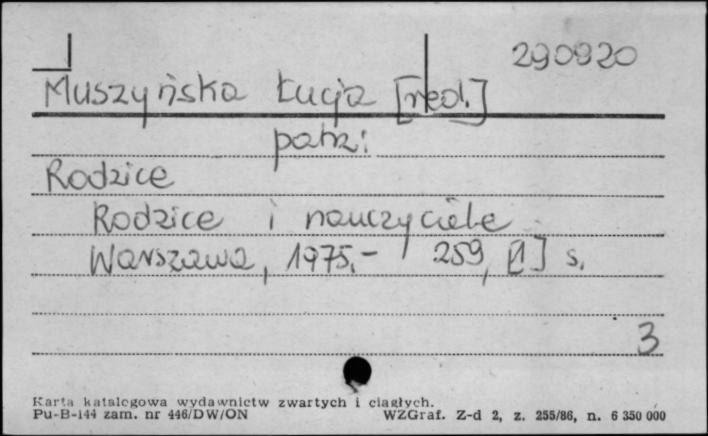 290920
Muszyńska Łucja [red.]
patrz:
Rodzice
Rodzice i nauczyciele
Warszawa, 1975.- 259, [1] s.
3
Karta katalogowa wydawnictw zwartych i ciągłych.
Pu-B-144 zam. nr 446/DW/ON WZGraf. Z-d 2, z. 255/86, n. 6 350 000